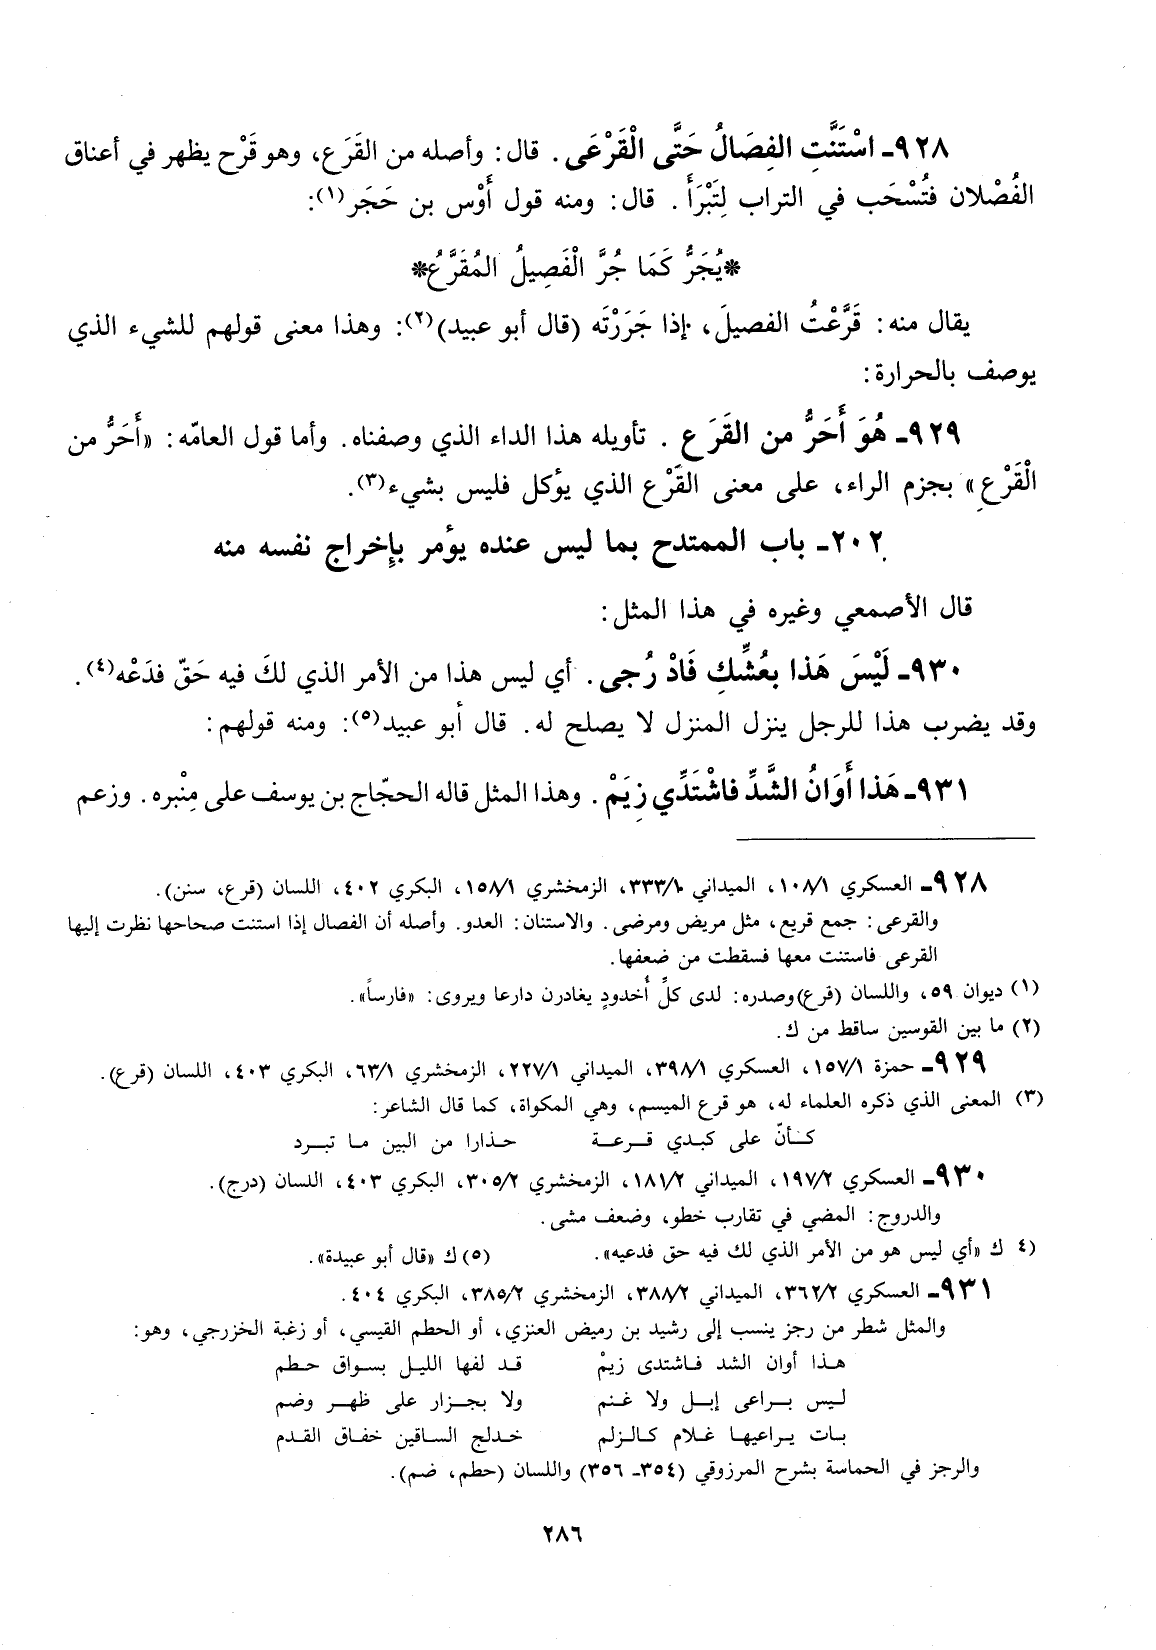 ٩٢٨ـ اسْتَنَّتِ الفِصَالُ حَتَّى الْقَرْعَى. قال: وأصله من القَرَع، وهو قَرْح يظهر في أعناق
الفُصْلان فتُسْحَب في التراب لِتَبْرَأَ. قال: ومنه قول أَوْس بن حَجَر(١):
*يُجَرُّ كَمَا جُرَّ الْفَصِيلُ المُقَرَّعُ*
يقال منه: قَرَّعْتُ الفصيلَ، إذا جَرَرْتَه (قال أبو عبيد)(٢): وهذا معنى قولهم للشيء الذي
يوصف بالحرارة:
٩٢٩ـ هُوَ أَحَرُّ من القَرَع. تأويله هذا الداء الذي وصفناه. وأما قول العامّه: «أَحَرُّ من
الْقَرْعِ» بجزم الراء، على معنى القَرْع الذي يؤكل فليس بشيء(٣).
٢٠٢ـ باب الممتدح بما ليس عنده يؤمر بإخراج نفسه منه
قال الأصمعي وغيره في هذا المثل:
٩٣٠ـ لَيْسَ هَذا بعُشِّكِ فَادْ رُجى. أي ليس هذا من الأمر الذي لكَ فيه حَقّ فدَعْه(٤).
وقد يضرب هذا للرجل ينزل المنزل لا يصلح له. قال أبو عبيد(٥): ومنه قولهم:
٩٣١ـ هَذا أَوَانُ الشَّدِّ فاشْتَدِّي زِيَمْ. وهذا المثل قاله الحجّاج بن يوسف على مِنْبره. وزعم
٩٢٨ـ العسكري ١٠٨/١، الميداني ٣٣٣/١، الزمخشري ١٥٨/١، البكري ٤٠٢، اللسان (قرع، سنن).
والقرعى: جمع قريع، مثل مريض ومرضى. والاستنان: العدو. وأصله أن الفصال إذا استنت صحاحها نظرت إليها
القرعى فاستنت معها فسقطت من ضعفها.
(١) ديوان ٥٩، واللسان (قرع) وصدره: لدى كلِّ أُخدودٍ يغادرن دارعا ويروى: «فارساً».
(٢) ما بين القوسين ساقط من ك.
٩٢٩ـ حمزة ١٥٧/١، العسكري ٣٩٨/١، الميداني ٢٢٧/١، الزمخشري ٦٣/١، البكري ٤٠٣، اللسان (قرع).
(٣) المعنى الذي ذكره العلماء له، هو قرع الميسم، وهي المكواة، كما قال الشاعر:
كــأنّ على كبدي قــرعــة حذارا من البين ما تبرد
٩٣٠ـ العسكري ١٩٧/٢، الميداني ١٨١/٢، الزمخشري ٣٠٥/٢، البكري ٤٠٣، اللسان (درج).
والدروج: المضي في تقارب خطو، وضعف مشى.
(٤ ك «أي ليس هو من الأمر الذي لك فيه حق فدعيه». (٥) ك «قال أبو عبيدة».
٩٣١ـ العسكري ٣٦٢/٢، الميداني ٣٨٨/٢، الزمخشري ٣٨٥/٢، البكري ٤٠٤.
والمثل شطر من رجز ينسب إلى رشيد بن رميض العنزي، أو الحطم القيسي، أو زغبة الخزرجي، وهو:
هذا أوان الشد فاشتدى زيمْ قد لفها الليل بسواق حطم
ليس براعى إبل ولا غنم ولا بجزار على ظهر وضم
بات يراعيها غلام كالزلم خدلج الساقين خفاق القدم
والرجز في الحماسة بشرح المرزوقي (٣٥٤ـ ٣٥٦) واللسان (حطم، ضم).
٢٨٦